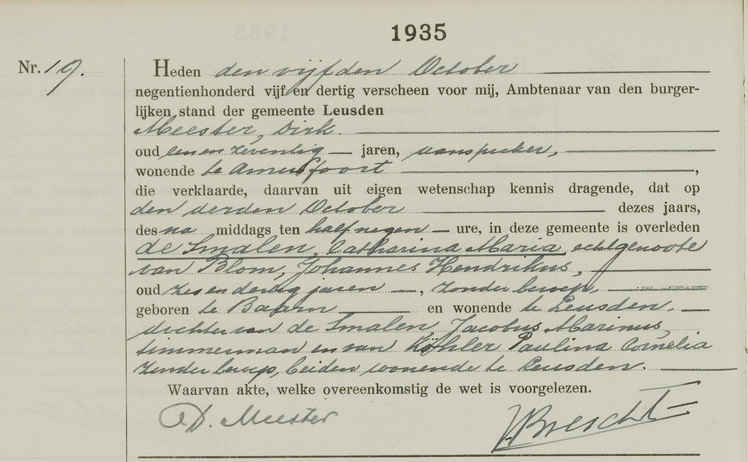 1935
Nr. 19. Heden den vijfden October
negentienhonderd vijf en dertig verscheen voor mij, Ambtenaar van den burger-
lijken stand der gemeente Leusden
Meester, Dirk.
oud een en zeventig jaren, aanspreker,
wonende te Amersfoort,
die verklaarde, daarvan uit eigen wetenschap kennis dragende, dat op
den derden October dezes jaars,
des na middags ten half negen ure, in deze gemeente is overleden
de Smalen, Catharina Maria, echtgenoote
van Blom, Johannes Hendrikus,
oud zes en dertig jaren, zonder beroep,
geboren te Baarn en wonende te Leusden.
dochter van de Smalen, Jacobus Marinus,
timmerman en van Köhler Paulina Cornelia
zonder beroep, beiden wonende te Leusden.
Waarvan akte, welke overeenkomstig de wet is voorgelezen.
D. Meester